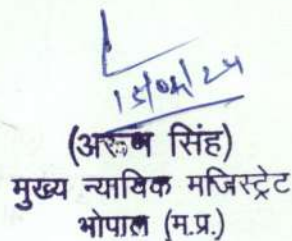 (अरुण सिंह)
मुख्य न्यायिक मजिस्ट्रेट
भोपाल (म.प्र.)